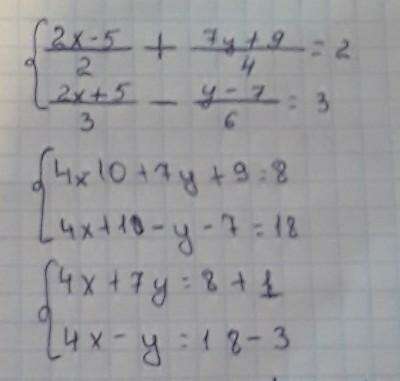 { (2x-5)/2 + (7y+9)/4 = 2
(2x+5)/3 - (y-7)/6 = 3
{ 4x10+7y+9=8
4x+10-y-7=18
{ 4x+7y=8+1
4x-y=18-3